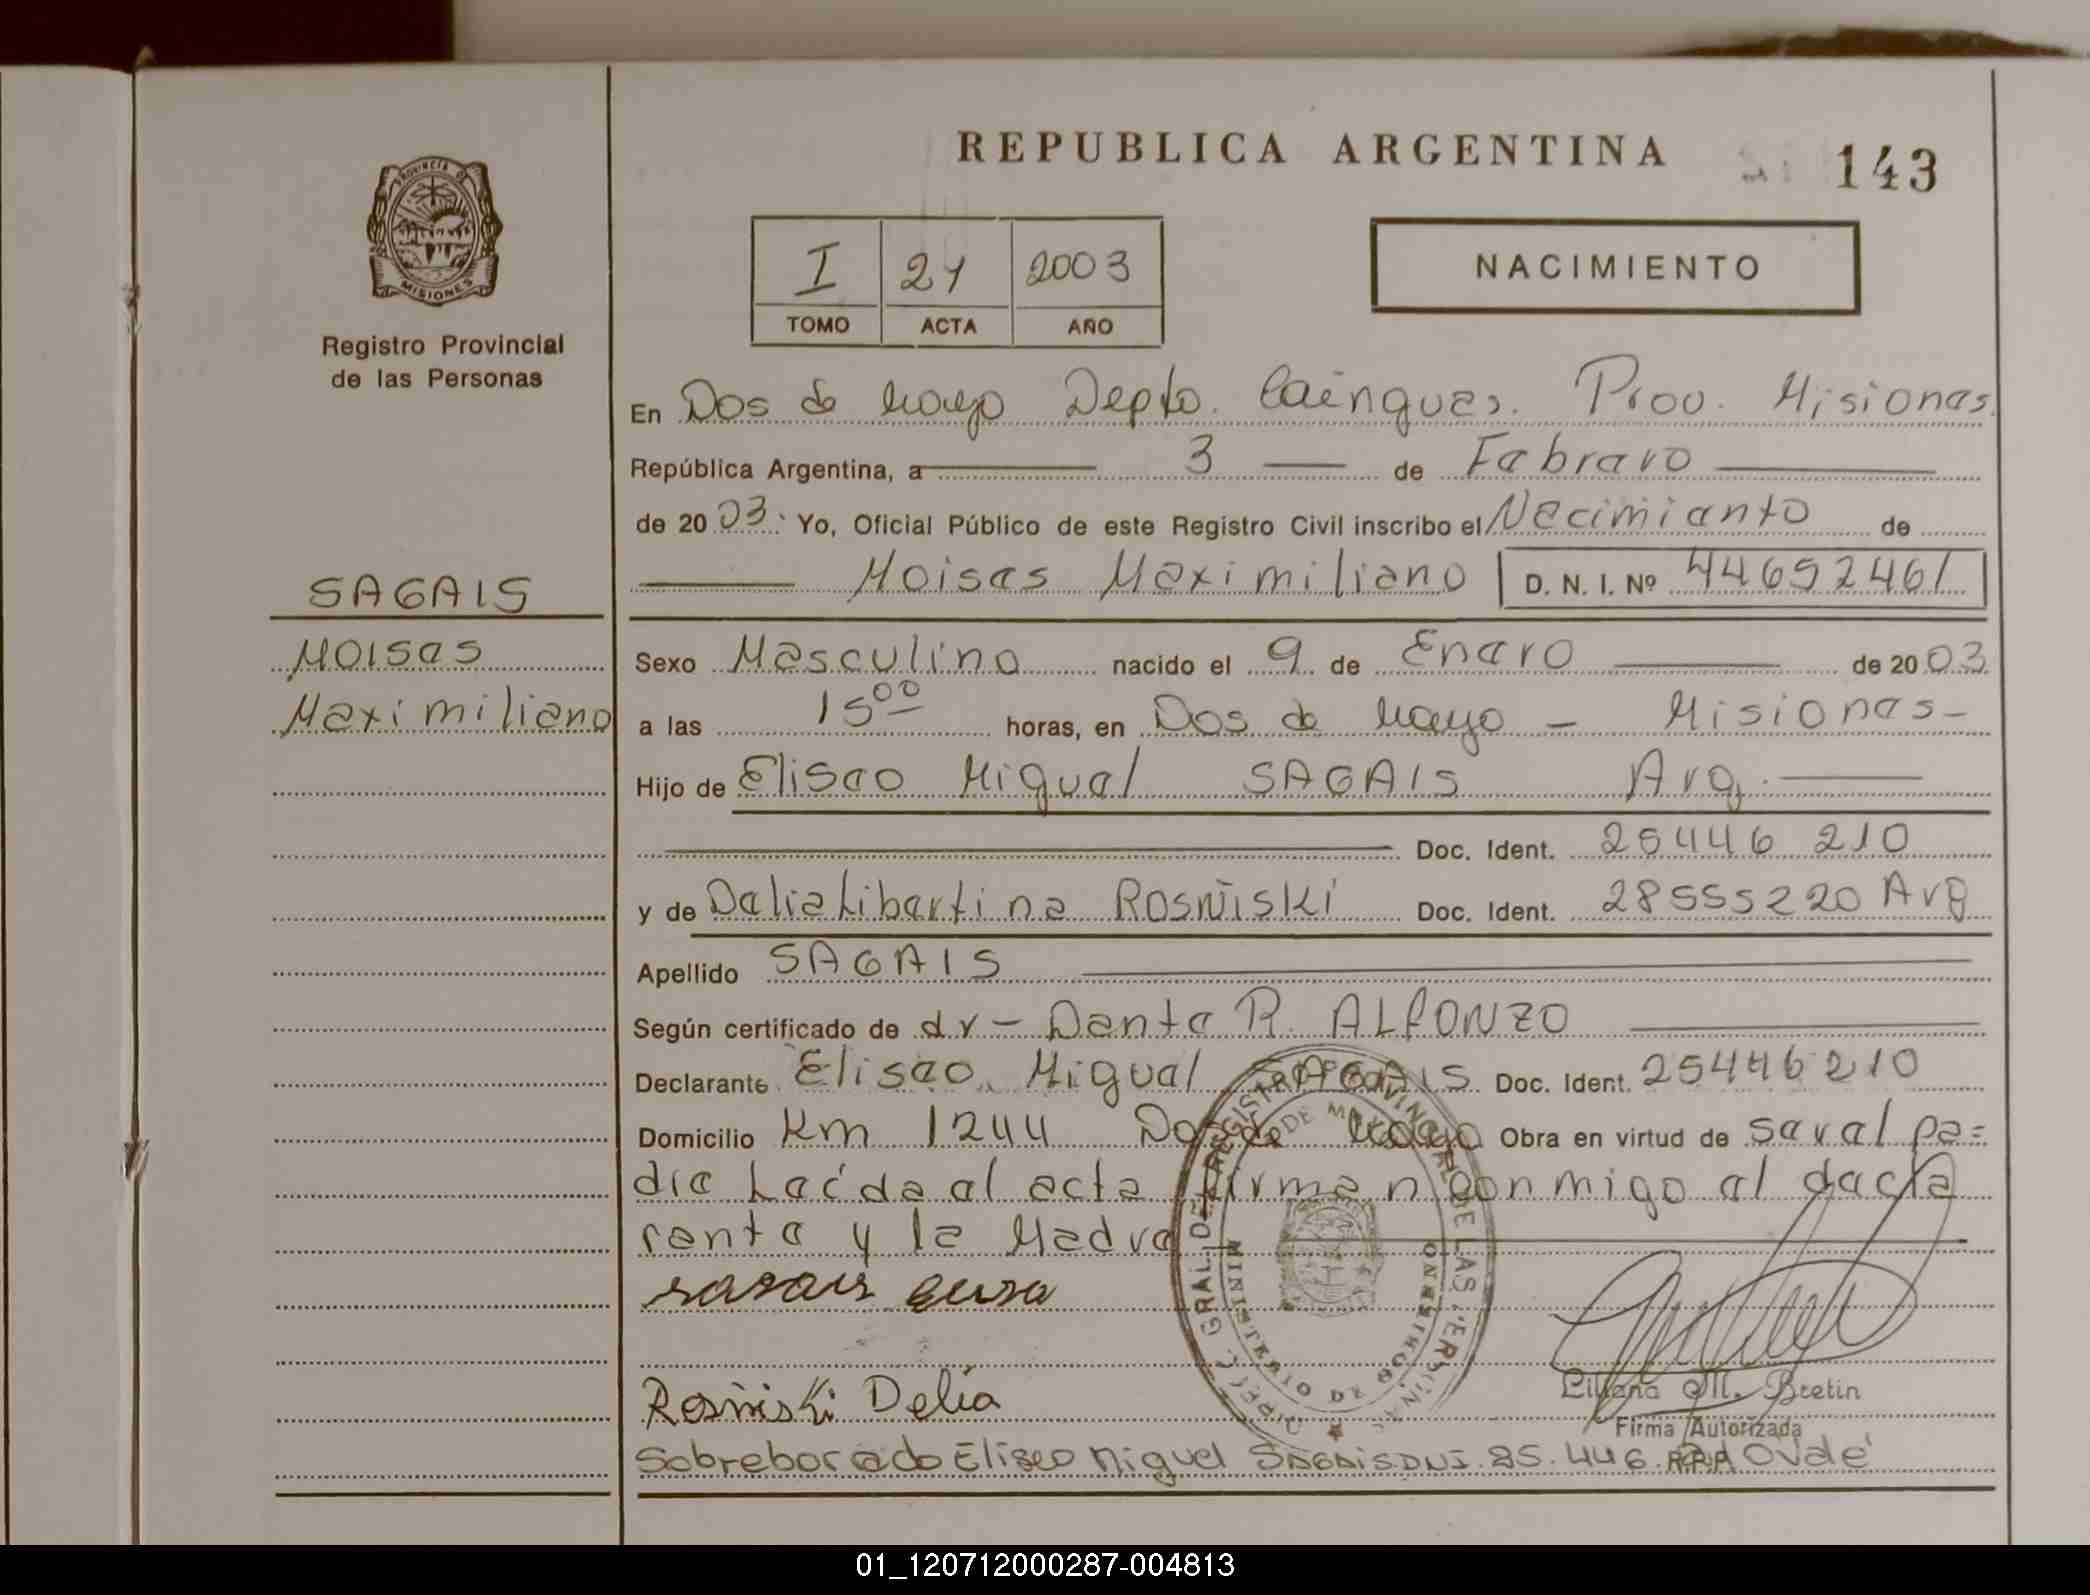 REPUBLICA ARGENTINA
143
PROVINCIA DE
MISIONES
Registro Provincial
de las Personas
I 21 2003
TOMO ACTA AÑO
NACIMIENTO
En Dos de Mayo Depto. Cainguas. Prov. Misiones.
República Argentina, a 3 de Febrero
de 2003. Yo, Oficial Público de este Registro Civil inscribo el Nacimiento de
Moises Maximiliano D. N. I. Nº 44652461
SAGAIS
Moises
Maximiliano
Sexo Masculino nacido el 9 de Enero de 2003
a las 15 00 horas, en Dos de Mayo - Misiones-
Hijo de Eliseo Miguel SAGAIS Arg.
Doc. Ident. 25446 210
y de Delia Libertina Rosñiski Doc. Ident. 28555220 Arg
Apellido SAGAIS
Según certificado de dr- Dante R. ALFONZO
Declarante Eliseo Miguel SAGAIS Doc. Ident. 25446210
Domicilio Km 1244 Dos de Mayo Obra en virtud de ser el pa=
dre Leída el acta firman conmigo el decla
rente y la Madre
Rosñiski Delia
Liliana M. Bretin
Firma Autorizada
Sobreborado Eliseo Miguel SAGAIS DNI. 25.446. Vale
DIREC. GRAL. DE REGISTRO PROVINCIAL DE LAS PERSONAS
MINISTERIO DE GOBIERNO
01_120712000287-004813